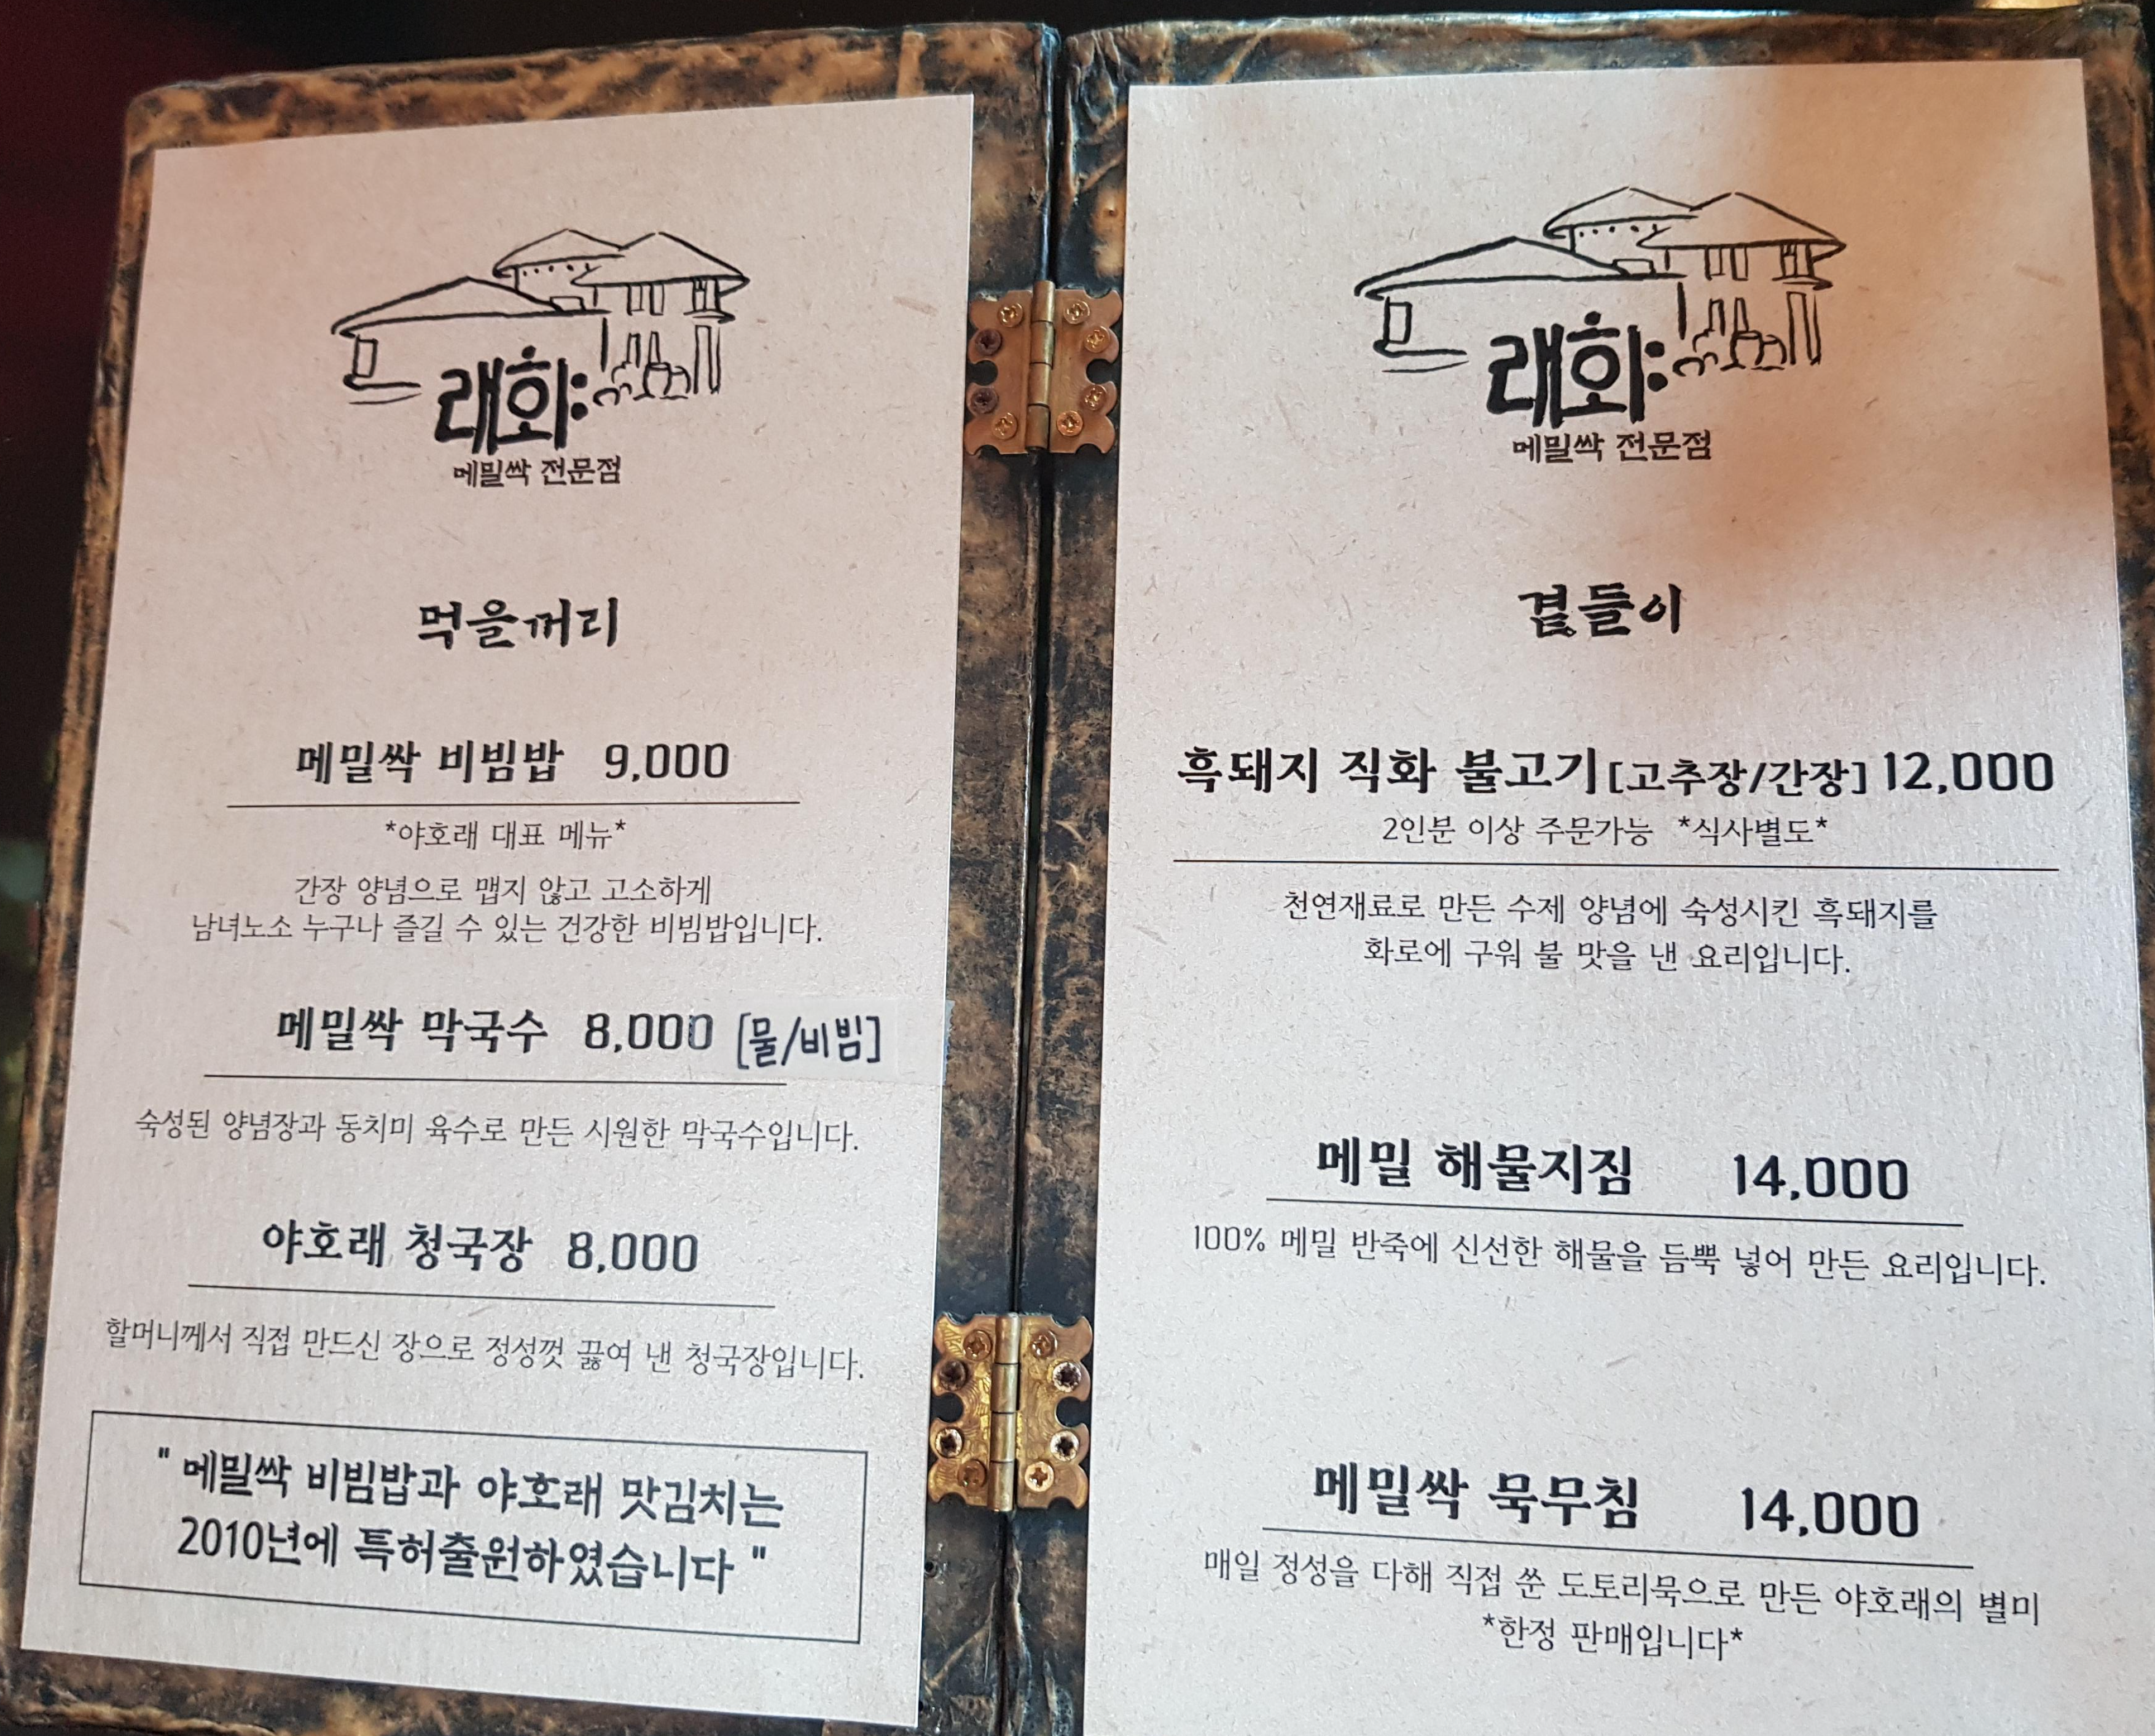 래화:
메밀싹 전문점
먹을꺼리
메밀싹 비빔밥 9,000
*야호래 대표 메뉴*
간장 양념으로 맵지 않고 고소하게
남녀노소 누구나 즐길 수 있는 건강한 비빔밥입니다.
메밀싹 막국수 8,000 [물/비빔]
숙성된 양념장과 동치미 육수로 만든 시원한 막국수입니다.
야호래 청국장 8,000
할머니께서 직접 만드신 장으로 정성껏 끓여 낸 청국장입니다.
" 메밀싹 비빔밥과 야호래 맛김치는
2010년에 특허출원하였습니다 "
래화:
메밀싹 전문점
곁들이
흑돼지 직화 불고기[고추장/간장] 12,000
2인분 이상 주문가능 *식사별도*
천연재료로 만든 수제 양념에 숙성시킨 흑돼지를
화로에 구워 불 맛을 낸 요리입니다.
메밀 해물지짐 14,000
100% 메밀 반죽에 신선한 해물을 듬뿍 넣어 만든 요리입니다.
메밀싹 묵무침 14,000
매일 정성을 다해 직접 쑨 도토리묵으로 만든 야호래의 별미
*한정 판매입니다*